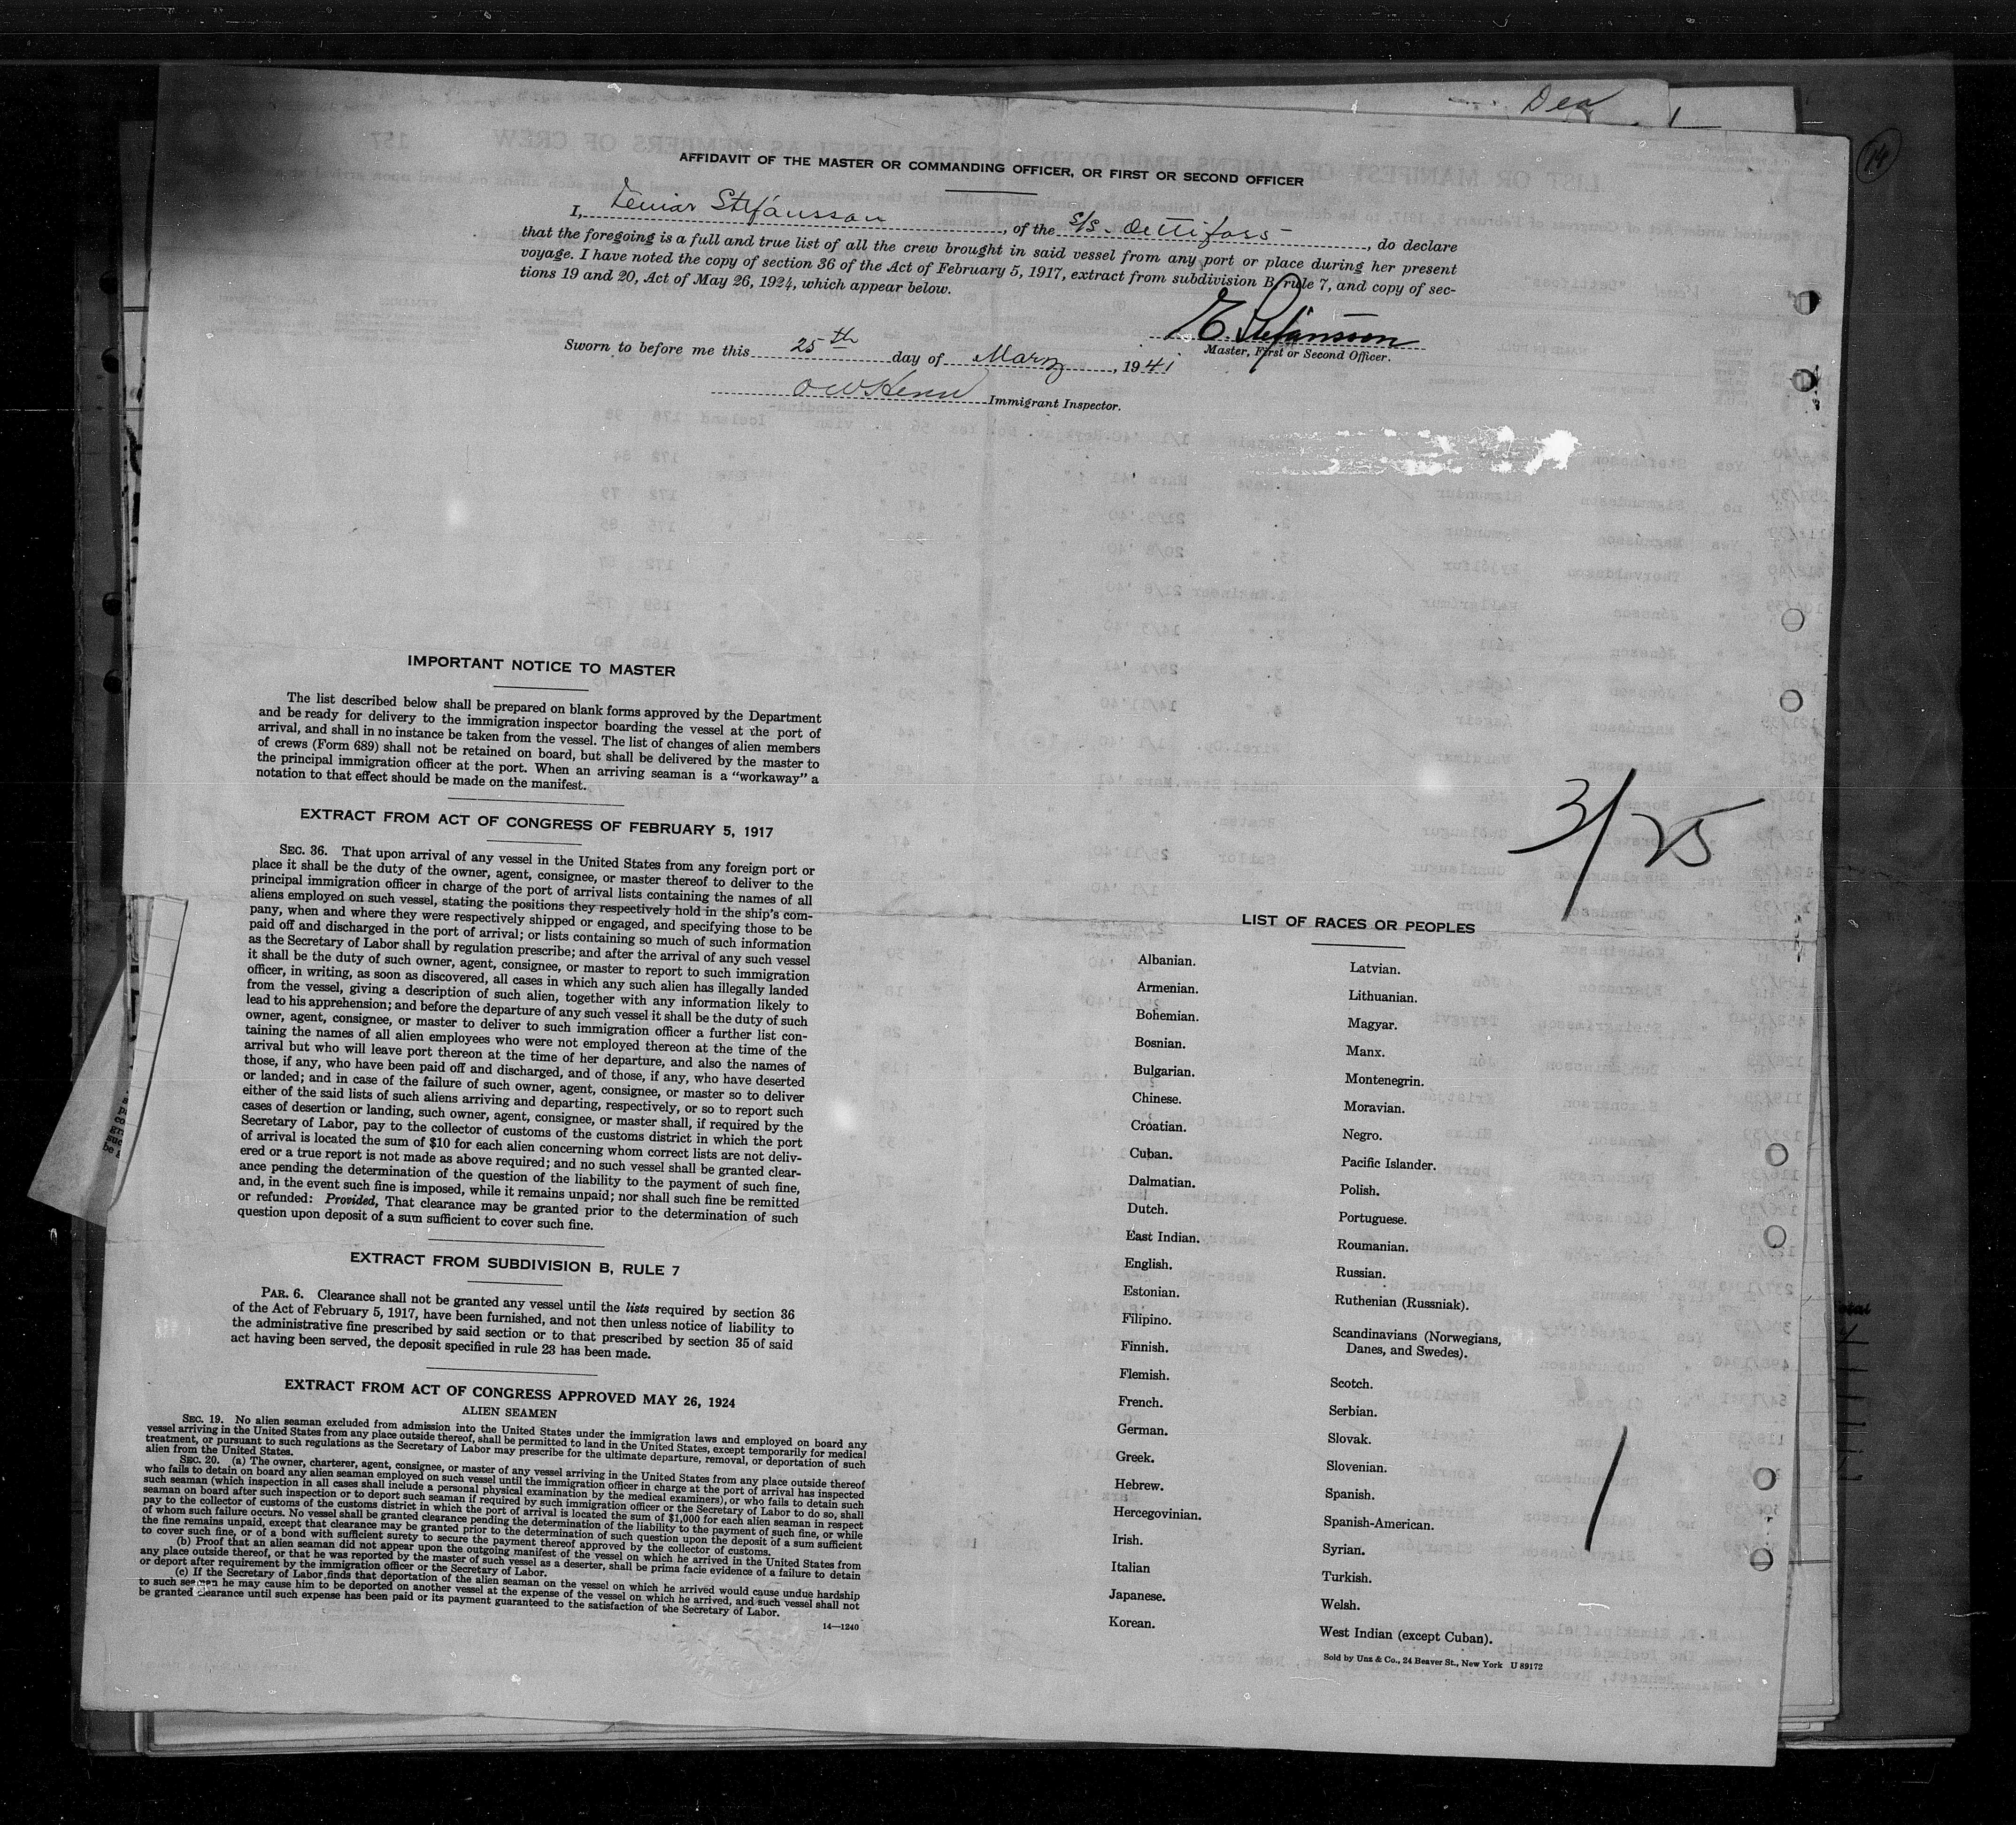 Dea
14
AFFIDAVIT OF THE MASTER OR COMMANDING OFFICER, OR FIRST OR SECOND OFFICER
I, Einar Stefánsson, of the S/S. Dettifoss, do declare
that the foregoing is a full and true list of all the crew brought in said vessel from any port or place during her present
voyage. I have noted the copy of section 36 of the Act of February 5, 1917, extract from subdivision B, rule 7, and copy of sec-
tions 19 and 20, Act of May 26, 1924, which appear below.
E. Stefánsson
Master, First or Second Officer.
Sworn to before me this 25th day of March, 1941
Immigrant Inspector.
IMPORTANT NOTICE TO MASTER
The list described below shall be prepared on blank forms approved by the Department
and be ready for delivery to the immigration inspector boarding the vessel at the port of
arrival, and shall in no instance be taken from the vessel. The list of changes of alien members
of crews (Form 689) shall not be retained on board, but shall be delivered by the master to
the principal immigration officer at the port. When an arriving seaman is a "workaway" a
notation to that effect should be made on the manifest.
EXTRACT FROM ACT OF CONGRESS OF FEBRUARY 5, 1917
SEC. 36. That upon arrival of any vessel in the United States from any foreign port or
place it shall be the duty of the owner, agent, consignee, or master thereof to deliver to the
principal immigration officer in charge of the port of arrival lists containing the names of all
aliens employed on such vessel, stating the positions they respectively hold in the ship's com-
pany, when and where they were respectively shipped or engaged, and specifying those to be
paid off and discharged in the port of arrival; or lists containing so much of such information
as the Secretary of Labor shall by regulation prescribe; and after the arrival of any such vessel
it shall be the duty of such owner, agent, consignee, or master to report to such immigration
officer, in writing, as soon as discovered, all cases in which any such alien has illegally landed
from the vessel, giving a description of such alien, together with any information likely to
lead to his apprehension; and before the departure of any such vessel it shall be the duty of such
owner, agent, consignee, or master to deliver to such immigration officer a further list con-
taining the names of all alien employees who were not employed thereon at the time of the
arrival but who will leave port thereon at the time of her departure, and also the names of
those, if any, who have been paid off and discharged, and of those, if any, who have deserted
or landed; and in case of the failure of such owner, agent, consignee, or master so to deliver
either of the said lists of such aliens arriving and departing, respectively, or so to report such
cases of desertion or landing, such owner, agent, consignee, or master shall, if required by the
Secretary of Labor, pay to the collector of customs of the customs district in which the port
of arrival is located the sum of $10 for each alien concerning whom correct lists are not deliv-
ered or a true report is not made as above required; and no such vessel shall be granted clear-
ance pending the determination of the question of the liability to the payment of such fine,
and, in the event such fine is imposed, while it remains unpaid; nor shall such fine be remitted
or refunded: Provided, That clearance may be granted prior to the determination of such
question upon deposit of a sum sufficient to cover such fine.
EXTRACT FROM SUBDIVISION B, RULE 7
PAR. 6. Clearance shall not be granted any vessel until the lists required by section 36
of the Act of February 5, 1917, have been furnished, and not then unless notice of liability to
the administrative fine prescribed by said section or to that prescribed by section 35 of said
act having been served, the deposit specified in rule 23 has been made.
EXTRACT FROM ACT OF CONGRESS APPROVED MAY 26, 1924
ALIEN SEAMEN
SEC. 19. No alien seaman excluded from admission into the United States under the immigration laws and employed on board any
vessel arriving in the United States from any place outside thereof, shall be permitted to land in the United States, except temporarily for medical
treatment, or pursuant to such regulations as the Secretary of Labor may prescribe for the ultimate departure, removal, or deportation of such
alien from the United States.
SEC. 20. (a) The owner, charterer, agent, consignee, or master of any vessel arriving in the United States from any place outside thereof
who fails to detain on board any alien seaman employed on such vessel until the immigration officer in charge at the port of arrival has inspected
such seaman (which inspection in all cases shall include a personal physical examination by the medical examiners), or who fails to detain such
seaman on board after such inspection or to deport such seaman if required by such immigration officer or the Secretary of Labor to do so, shall
pay to the collector of customs of the customs district in which the port of arrival is located the sum of $1,000 for each alien seaman in respect
of whom such failure occurs. No vessel shall be granted clearance pending the determination of the liability to the payment of such fine, or while
the fine remains unpaid, except that clearance may be granted prior to the determination of such question upon the deposit of a sum sufficient
to cover such fine, or of a bond with sufficient surety to secure the payment thereof approved by the collector of customs.
(b) Proof that an alien seaman did not appear upon the outgoing manifest of the vessel on which he arrived in the United States from
any place outside thereof, or that he was reported by the master of such vessel as a deserter, shall be prima facie evidence of a failure to detain
or deport after requirement by the immigration officer or the Secretary of Labor.
(c) If the Secretary of Labor finds that deportation of the alien seaman on the vessel on which he arrived would cause undue hardship
to such seaman he may cause him to be deported on another vessel at the expense of the vessel on which he arrived, and such vessel shall not
be granted clearance until such expense has been paid or its payment guaranteed to the satisfaction of the Secretary of Labor.
14—1240
3/25
LIST OF RACES OR PEOPLES
Albanian.
Armenian.
Bohemian.
Bosnian.
Bulgarian.
Chinese.
Croatian.
Cuban.
Dalmatian.
Dutch.
East Indian.
English.
Estonian.
Filipino.
Finnish.
Flemish.
French.
German.
Greek.
Hebrew.
Hercegovinian.
Irish.
Italian
Japanese.
Korean.
Latvian.
Lithuanian.
Magyar.
Manx.
Montenegrin.
Moravian.
Negro.
Pacific Islander.
Polish.
Portuguese.
Roumanian.
Russian.
Ruthenian (Russniak).
Scandinavians (Norwegians,
Danes, and Swedes).
Scotch.
Serbian.
Slovak.
Slovenian.
Spanish.
Spanish-American.
Syrian.
Turkish.
Welsh.
West Indian (except Cuban).
Sold by Unz & Co., 24 Beaver St., New York U 89172